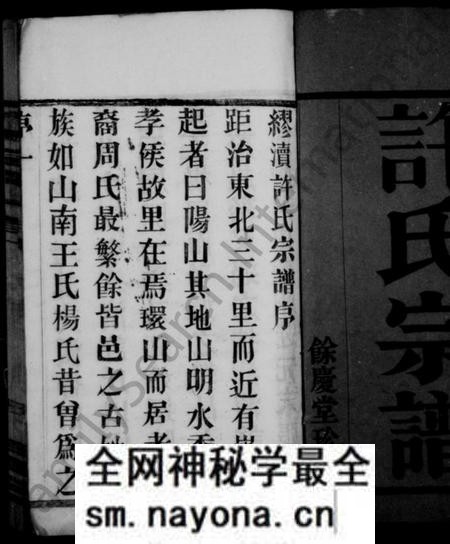 許氏宗譜
餘慶堂珍
繆瀆許氏宗譜序
距治東北三十里而近有
起者曰陽山其地山明水秀
孝侯故里在焉環山而居者
裔周氏最繁餘皆邑之古
族如山南王氏楊氏昔曾爲之
序一
FamilySearch International
全网神秘学最全
sm.nayona.cn